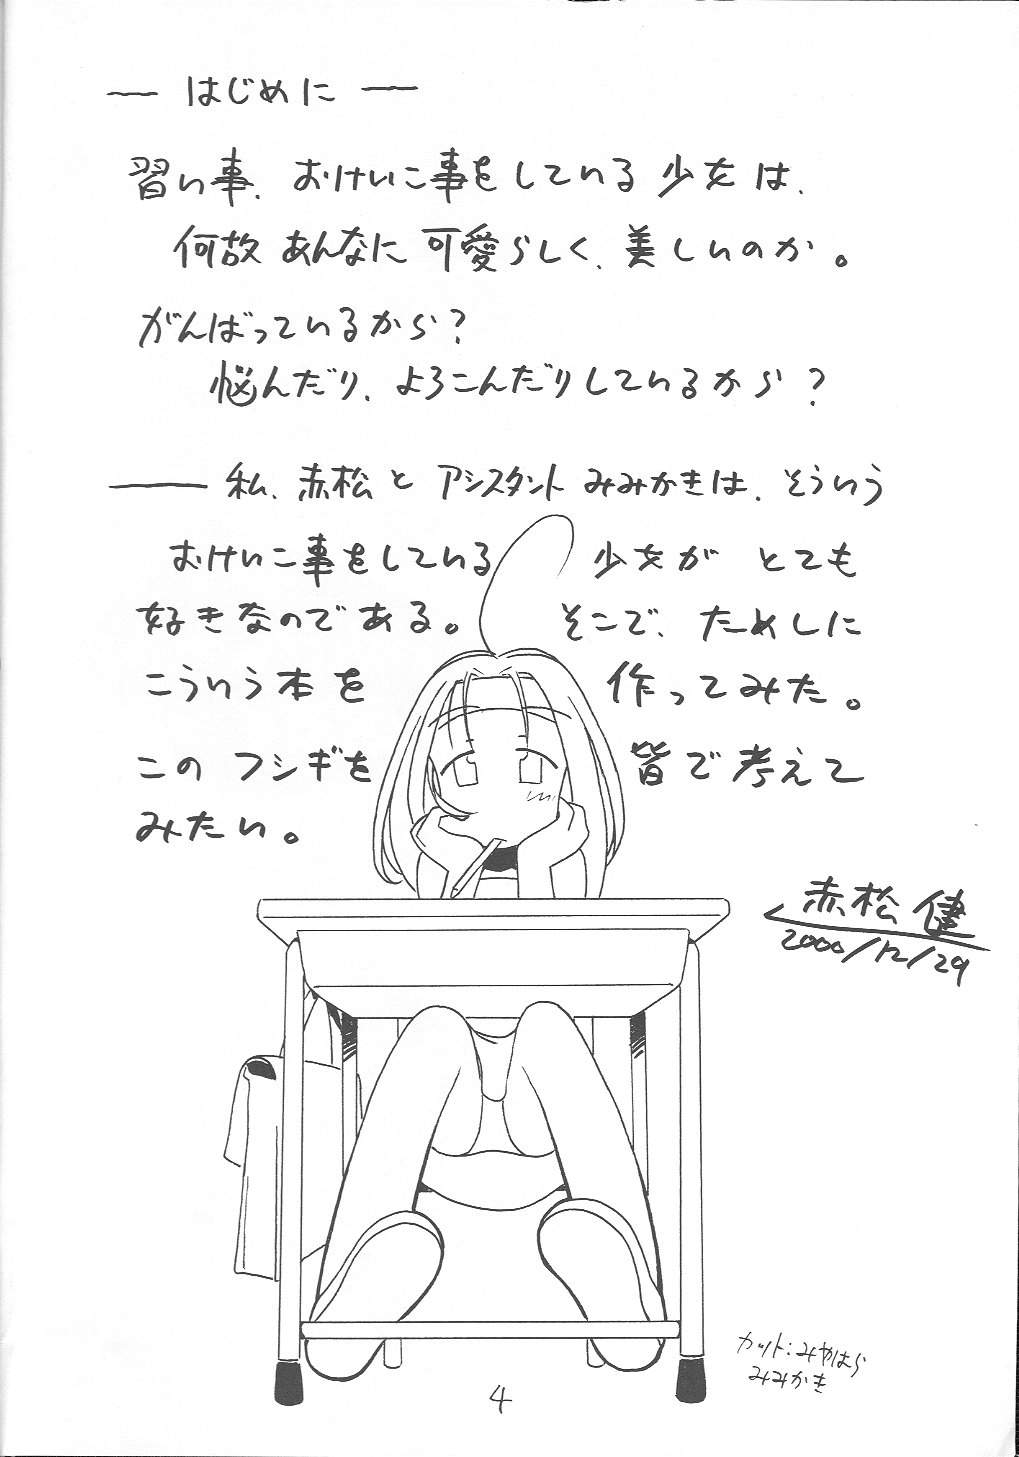 ― はじめに ―
習い事、おけいこ事をしている少女は、
何故あんなに可愛らしく、美しいのか。
がんばっているから?
悩んだり、よろこんだりしているから?
―― 私、赤松とアシスタントみみかきは、そういう
おけいこ事をしている少女がとても
好きなのである。そこで、ためしに
こういう本を作ってみた。
このフシギを皆で考えて
みたい。
赤松健
2000/12/29
カット:みやはら
みみかき
4